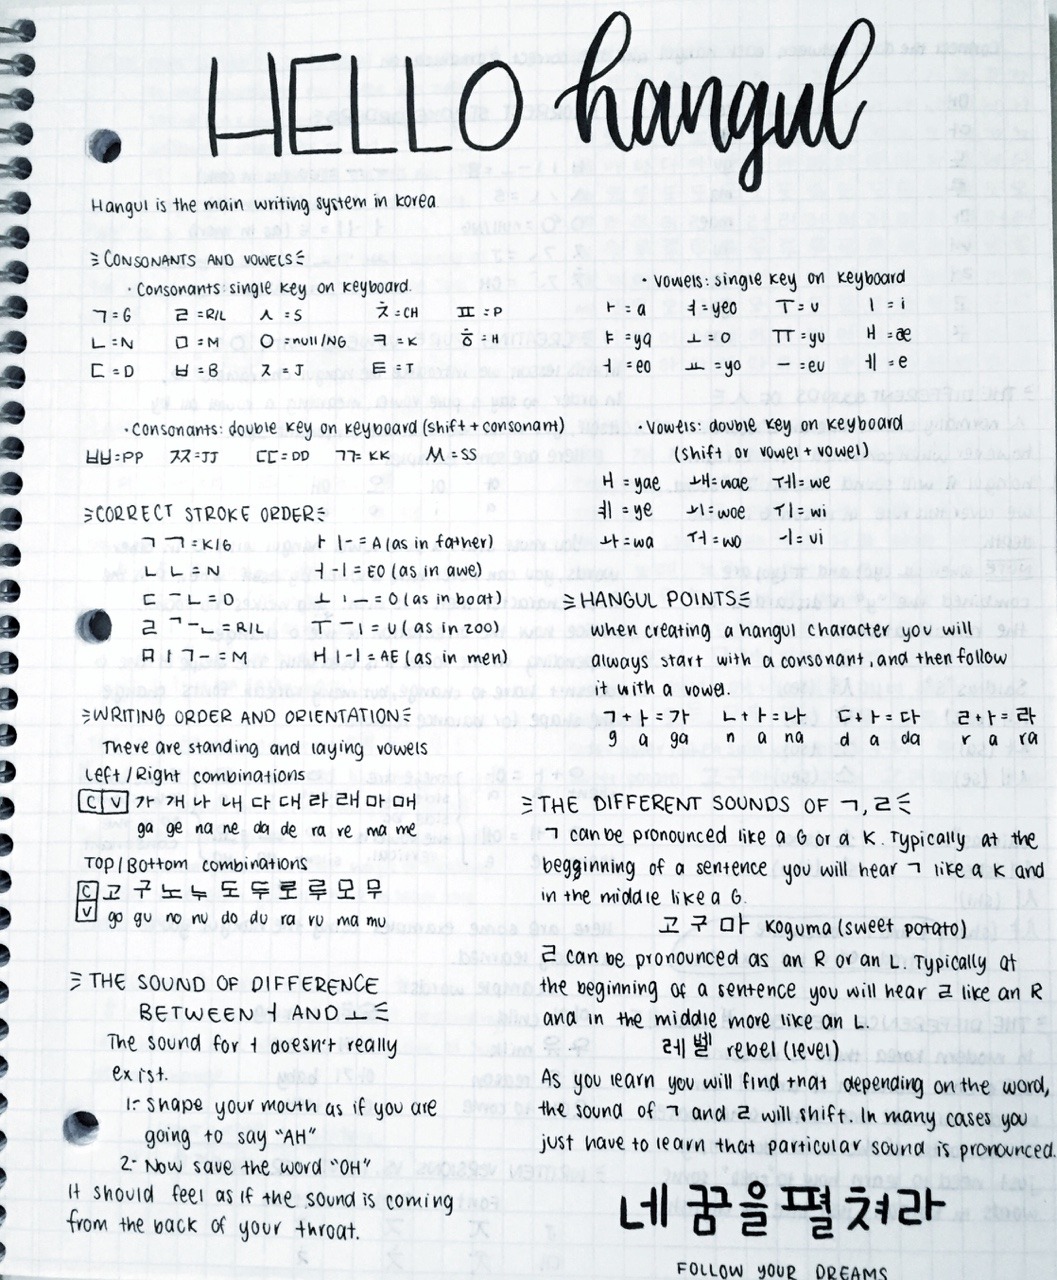 HELLO hangul
Hangul is the main writing system in korea
CONSONANTS AND VOWELS
· Consonants single key on keyboard.
ㄱ=G ㄹ=R/L ㅅ=S ㅊ=CH ㅍ=P
ㄴ=N ㅁ=M ㅇ=null/NG ㅋ=K ㅎ=H
ㄷ=D ㅂ=B ㅈ=J ㅌ=T
· Consonants: double key on keyboard (shift + consonant)
ㅃ=PP ㅉ=JJ ㄸ=DD ㄲ=KK ㅆ=SS
· Vowels: single key on keyboard
ㅏ=a ㅕ=yeo ㅜ=u ㅣ=i
ㅑ=ya ㅗ=o ㅠ=yu ㅐ=æ
ㅓ=eo ㅛ=yo ㅡ=eu ㅔ=e
· Vowels: double key on keyboard
(shift or vowel + vowel)
ㅒ=yae ㅙ=wae ㅞ=we
ㅖ=ye ㅚ=woe ㅟ=wi
ㅘ=wa ㅝ=wo ㅢ=ui
CORRECT STROKE ORDER
ㄱ ㄱ=K/G ㅏ ㅣ-=A (as in father)
ㄴ ㄴ=N ㅓ -ㅣ=EO (as in awe)
ㄷ ㅡㄴ=D ㅗ ㅣㅡ=O (as in boat)
ㄹ ㄱ-ㄴ=R/L ㅜ ㅡㅣ=U (as in zoo)
ㅁ ㅣㄱ-=M ㅐ ㅣ-ㅣ=AE (as in men)
WRITING ORDER AND ORIENTATION
There are standing and laying vowels
Left/Right combinations
C V 가 개 나 내 다 대 라 래 마 매
ga ge na ne da de ra re ma me
TOP/Bottom combinations
C 고 구 노 누 도 두 로 루 모 무
V go gu no nu do du ra ru ma mu
THE SOUND OF DIFFERENCE
BETWEEN ㅓ AND ㅗ
The sound for ㅓ doesn't really
exist.
1- Shape your mouth as if you are
going to say "AH"
2- Now save the word "OH"
It should feel as if the sound is coming
from the back of your throat.
HANGUL POINTS
when creating a hangul character you will
always start with a consonant, and then follow
it with a vowel.
ㄱ+ㅏ=가 ㄴ+ㅏ=나 ㄷ+ㅏ=다 ㄹ+ㅏ=라
g a ga n a na d a da r a ra
THE DIFFERENT SOUNDS OF ㄱ, ㄹ
ㄱ can be pronounced like a G or a K. Typically at the
begginning of a sentence you will hear ㄱ like a K and
in the middle like a G.
고구마 Koguma (sweet potato)
ㄹ can be pronounced as an R or an L. Typically at
the beginning of a sentence you will hear ㄹ like an R
and in the middle more like an L.
레벨 rebel (level)
As you learn you will find that depending on the word,
the sound of ㄱ and ㄹ will shift. In many cases you
just have to learn that particular sound is pronounced.
네 꿈을 펼쳐라
FOLLOW YOUR DREAMS